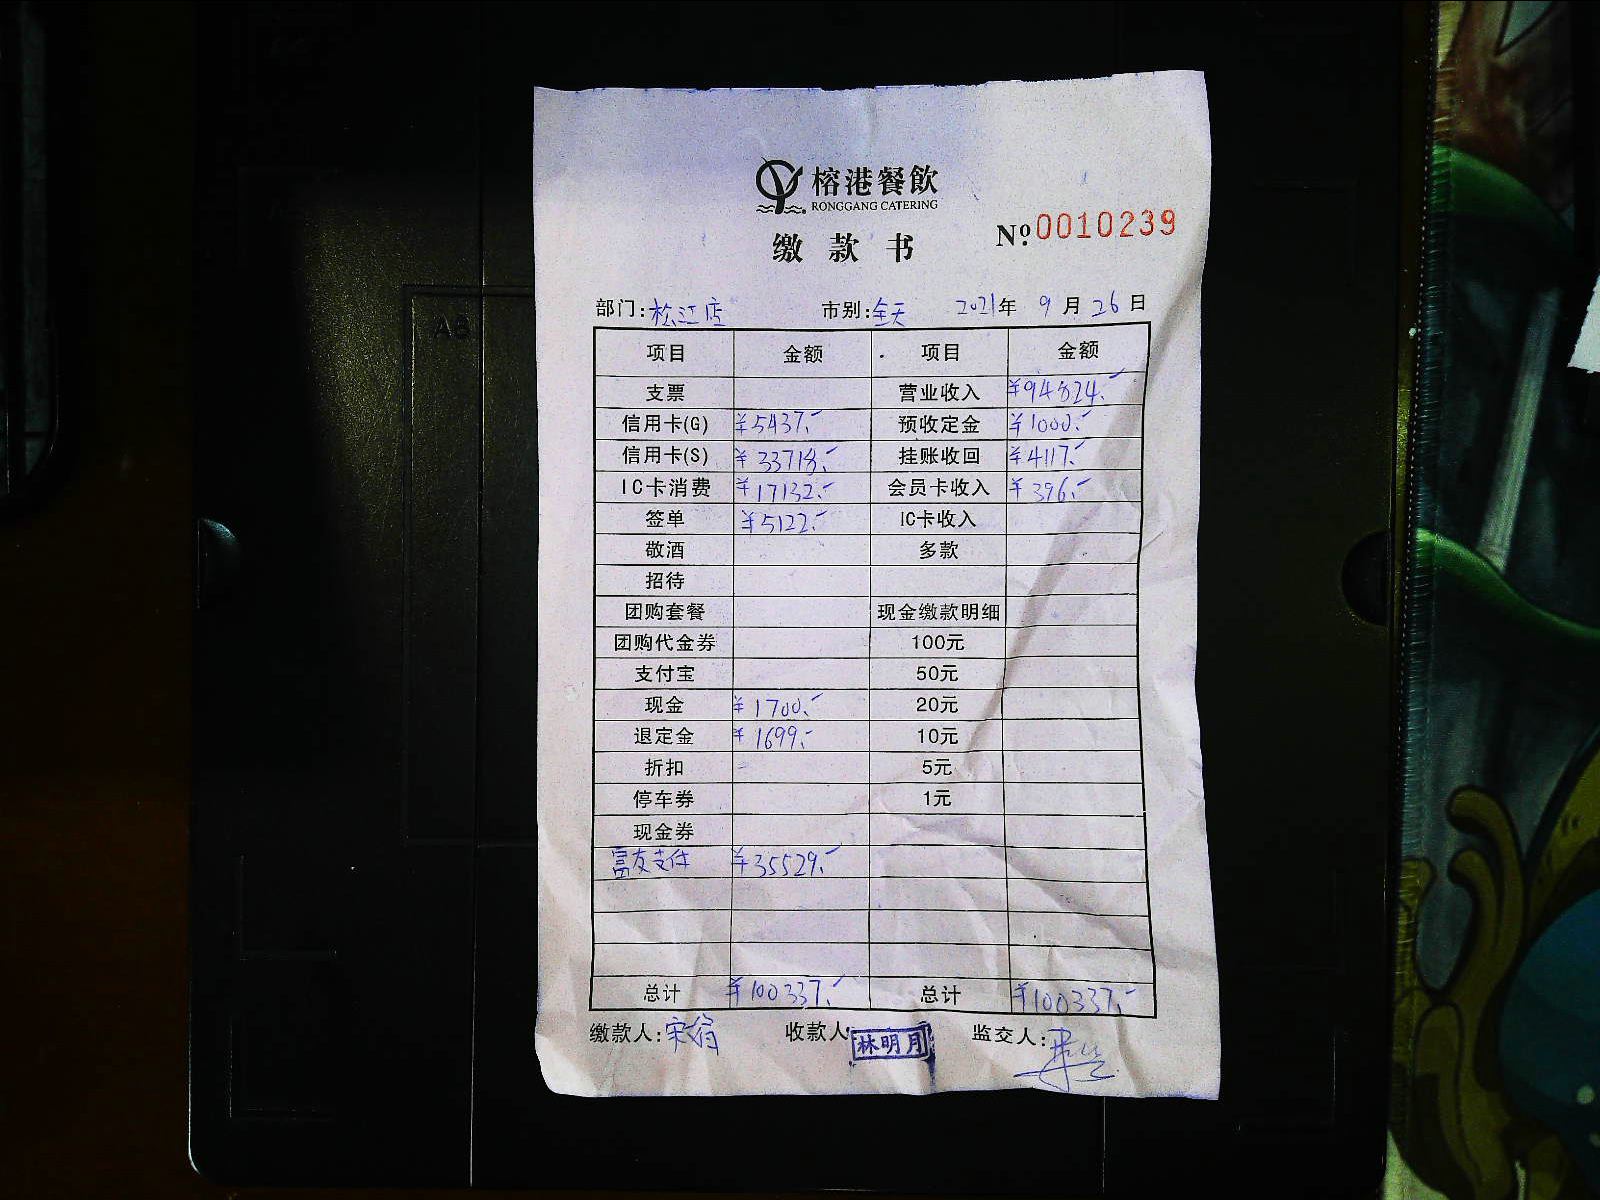 榕港餐飲
RONGGANG CATERING
缴款书
№ 0010239
部门:松江店 市别:全天 2021年9月26日
项目 金额 项目 金额
支票 营业收入 ¥94824.-
信用卡(G) ¥5437.- 预收定金 ¥1000.-
信用卡(S) ¥33718.- 挂账收回 ¥4117.-
IC卡消费 ¥17132.- 会员卡收入 ¥396.-
签单 ¥5122.- IC卡收入
敬酒 多款
招待
团购套餐 现金缴款明细
团购代金券 100元
支付宝 50元
现金 ¥1700.- 20元
退定金 ¥1699.- 10元
折扣 5元
停车券 1元
现金券
富友支付 ¥35529.-
总计 ¥100337.- 总计 ¥100337.-
缴款人:宋 收款人 林明月 监交人: